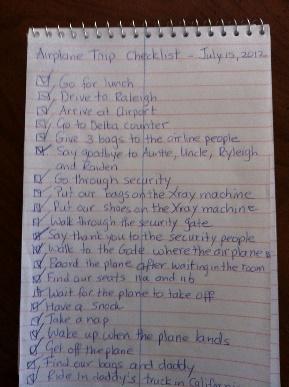 Airplane Trip Checklist - July 15, 2012
Go for lunch
Drive to Raleigh
Arrive at Airport
Go to Delta counter
Give 3 bags to the airline people
Say goodbye to Auntie, Uncle, Ryleigh
and Raiden
Go through security
Put our bags on the Xray machine
Put our shoes on the Xray machine
Walk through the security gate
Say thank you to the security people
Walk to the Gate where the airplane is
Board the plane after waiting in the room
Find our seats 11a and 11b
Wait for the plane to take off
Have a snack
Take a nap
Wake up when the plane lands
Get off the plane
Find our bags and daddy
Ride in daddy's truck in California